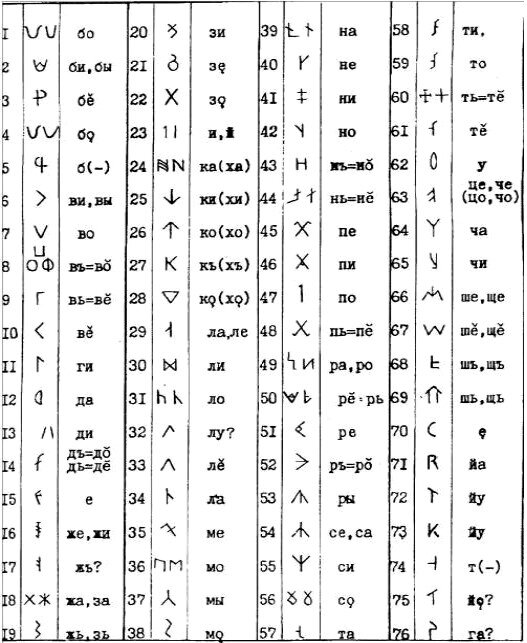 I бо
2 би,бы
3 бě
4 бǫ
5 б(-)
6 ви,вы
7 во
8 въ=вŏ
9 вь=вĕ
I0 вě
II ги
I2 да
I3 ди
I4 дъ=дŏ дь=дĕ
I5 е
I6 же,жи
I7 жь?
I8 жа,за
I9 жь,зь
20 зи
2I зę
22 зǫ
23 и,й
24 ка(ха)
25 ки(хи)
26 ко(хо)
27 къ(хъ)
28 кǫ(хǫ)
29 ла,ле
30 ли
3I ло
32 лу?
33 лě
34 
35 ме
36 мо
37 мы
38 мǫ
39 на
40 не
4I ни
42 но
43 нъ=нŏ
44 нь=нĕ
45 пе
46 пи
47 по
48 пь=пĕ
49 ра,ро
50 рĕ=рь
5I ре
52 ръ=рŏ
53 ры
54 се,са
55 си
56 сǫ
57 та
58 ти,
59 то
60 ть=тĕ
6I тě
62 у
63 це,че (цо,чо)
64 ча
65 чи
66 ше,ще
67 шě,щě
68 шъ,щъ
69 шь,щь
70 ę
7I йа
72 йу
73 йу
74 т(-)
75 йǫ?
76 га?